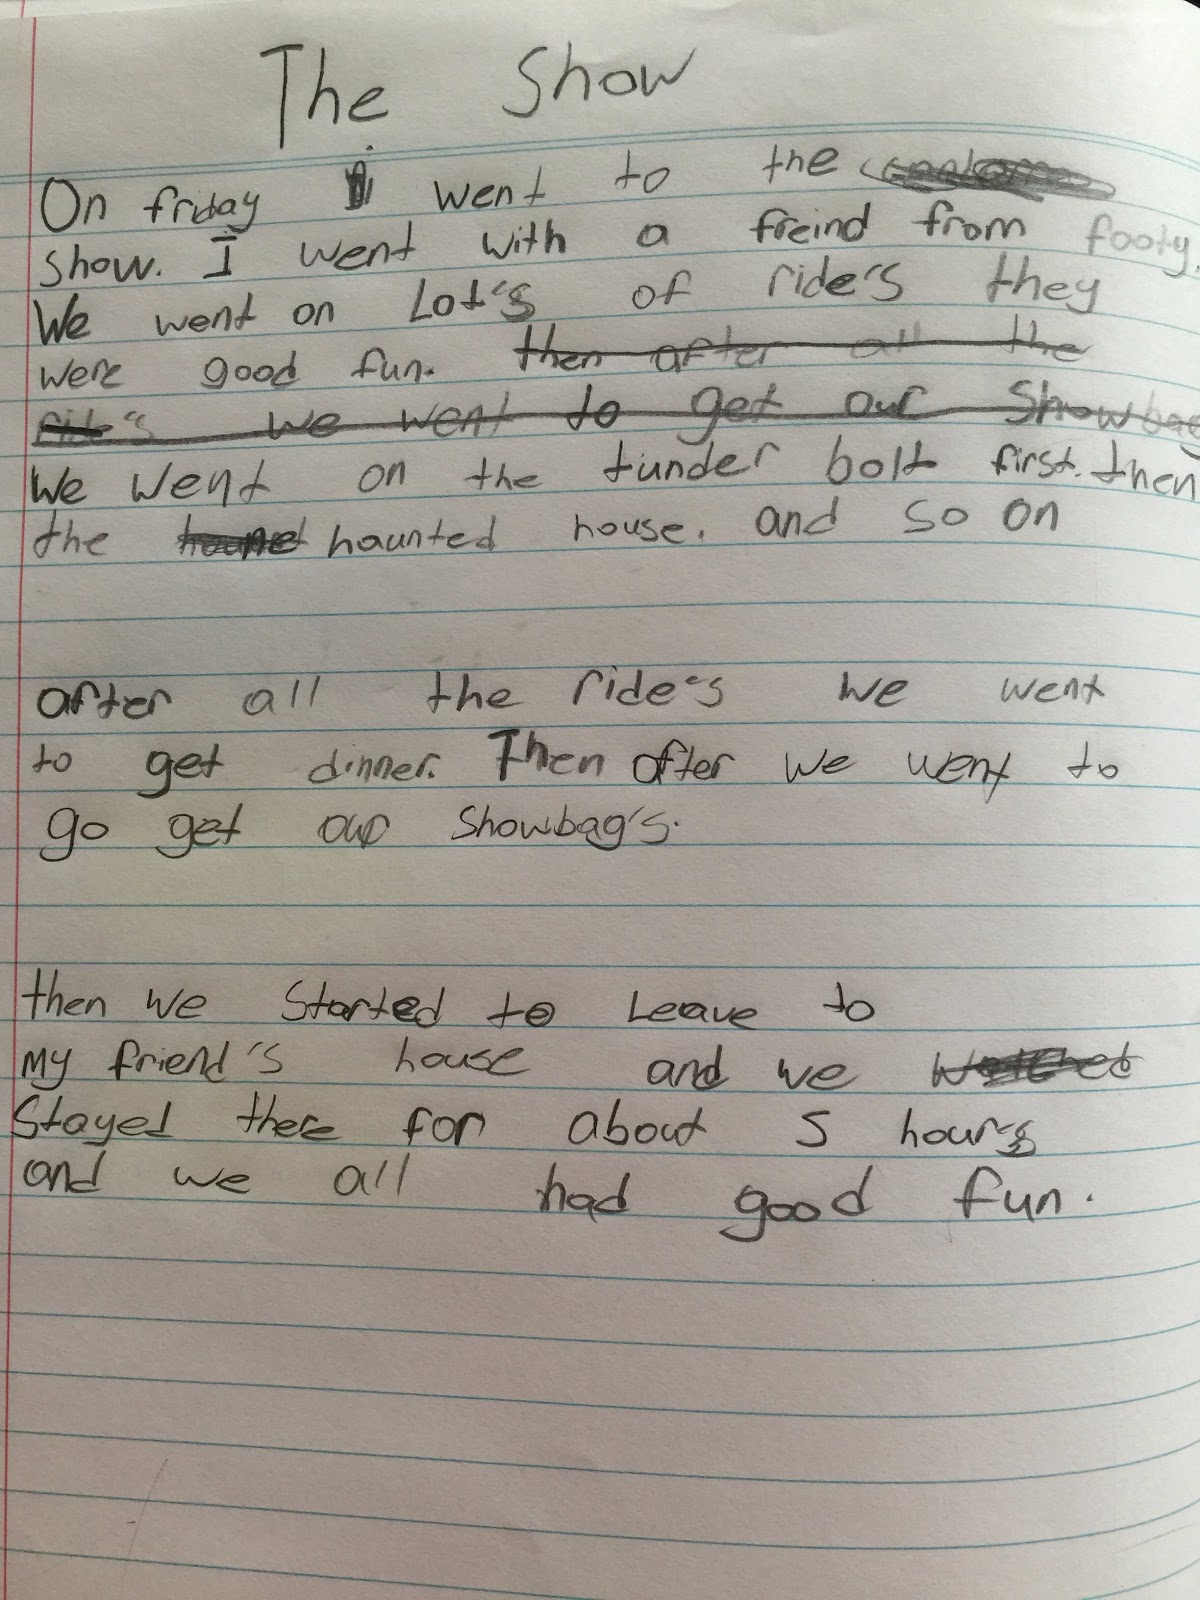 The Show
On friday I went to the
show. I went with a freind from footy.
We went on Lot's of ride's they
were good fun. then after all the
ride's we went to get our Showbag
We went on the tunder bolt first. then
the haunted house. and so on
after all the ride's we went
to get dinner. Then after we went to
go get our showbag's.
then we Started to Leave to
my friend's house and we watched
Stayed there for about 5 hours
and we all had good fun.